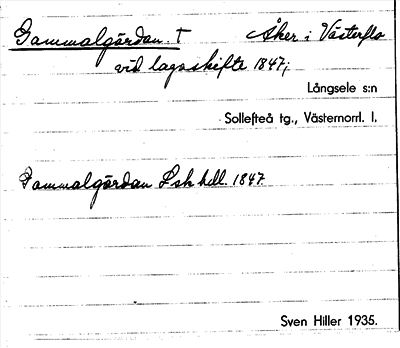 Gammalgårdan T Åker i Västerflo
vid lagaskifte 1847;
Långsele s:n
Sollefteå tg., Västernorrl. l.
Gammalgårdan Lsk hdl. 1847
Sven Hiller 1935.